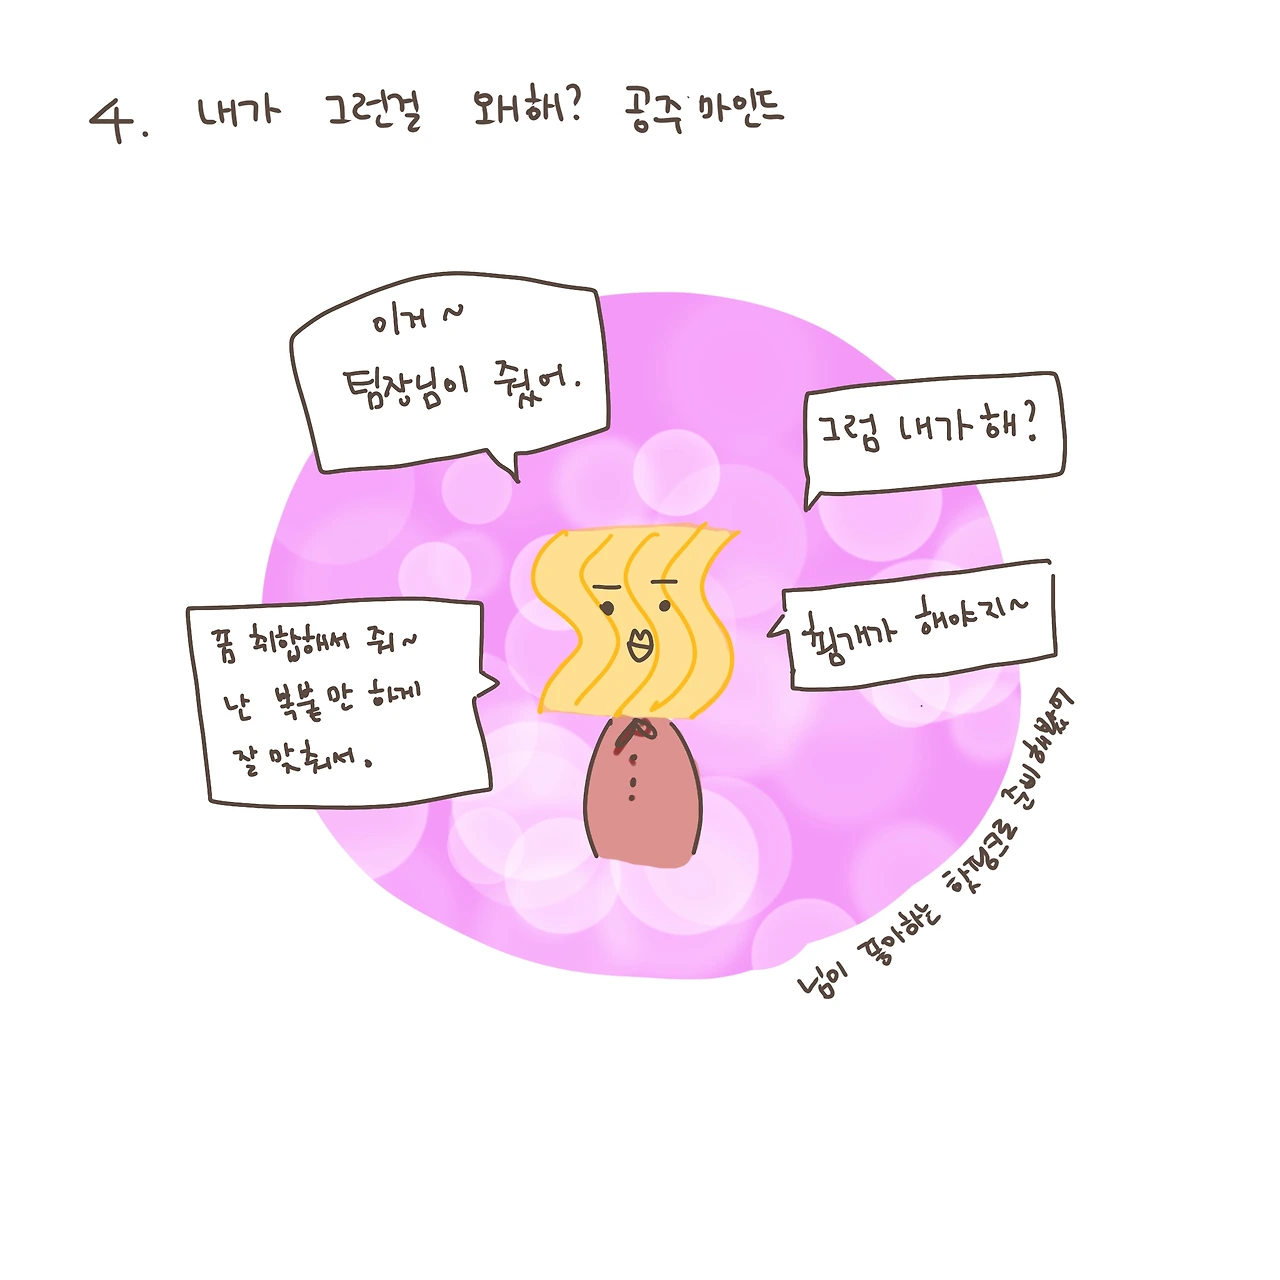 4. 내가 그런걸 왜해? 공주 마인드
이거~
팀장님이 줬어.
그럼 내가 해?
쮬개가 해야지~
폼 취합해서 줘~
난 복붙만 하게
잘 맞춰서.
님이 좋아하는 핫핑크로 준비해봤어